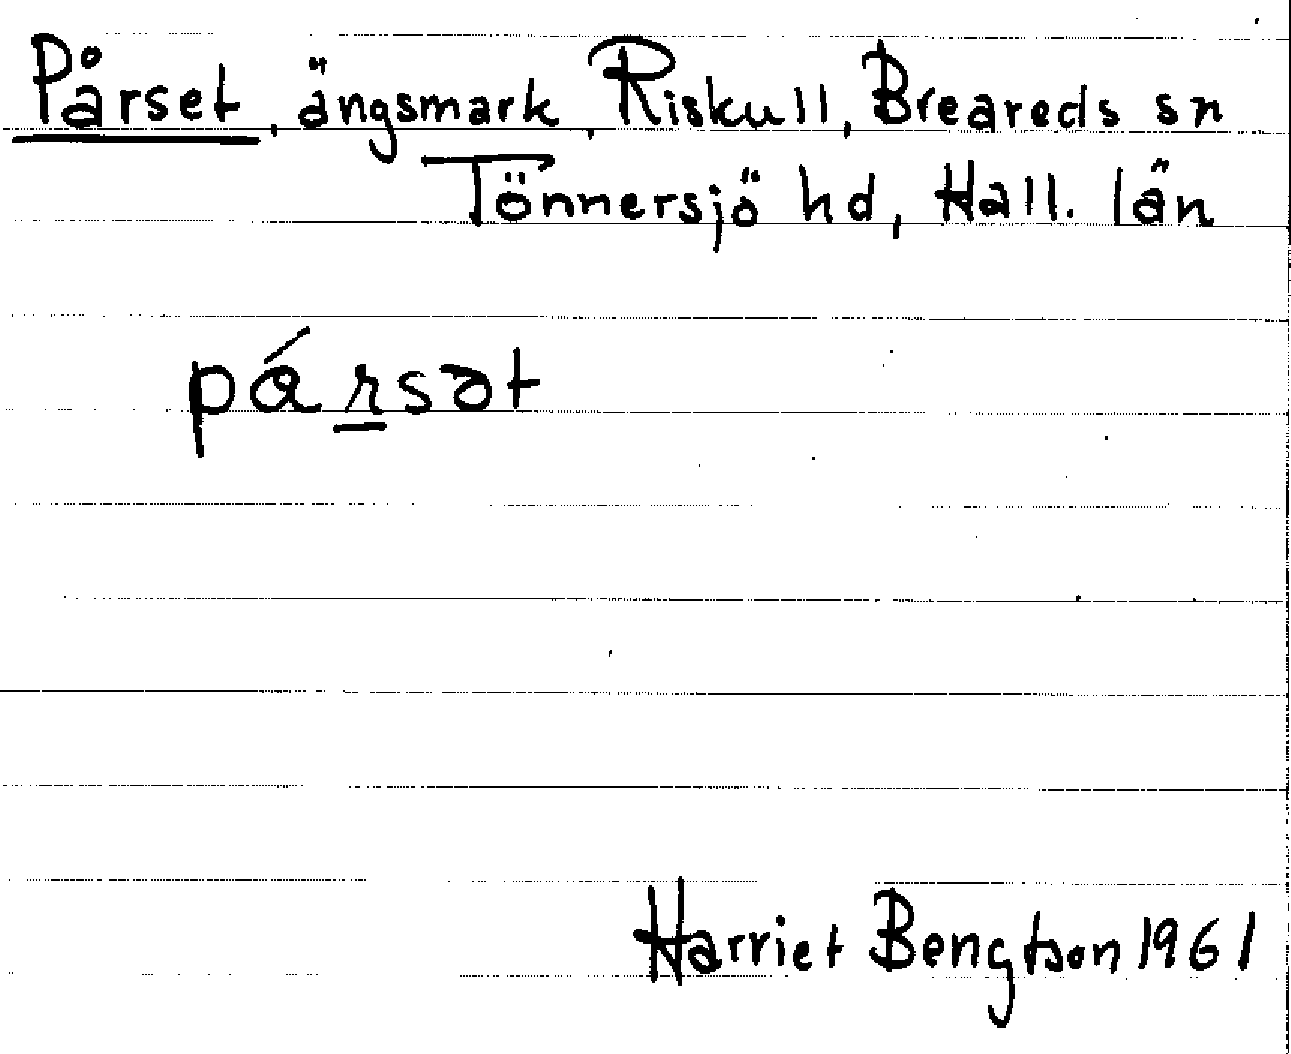 Pårset, ängsmark, Riskull, Breareds sn
Tönnersjö hd, Hall. län
pá̱rsət
Harriet Bengtson 1961